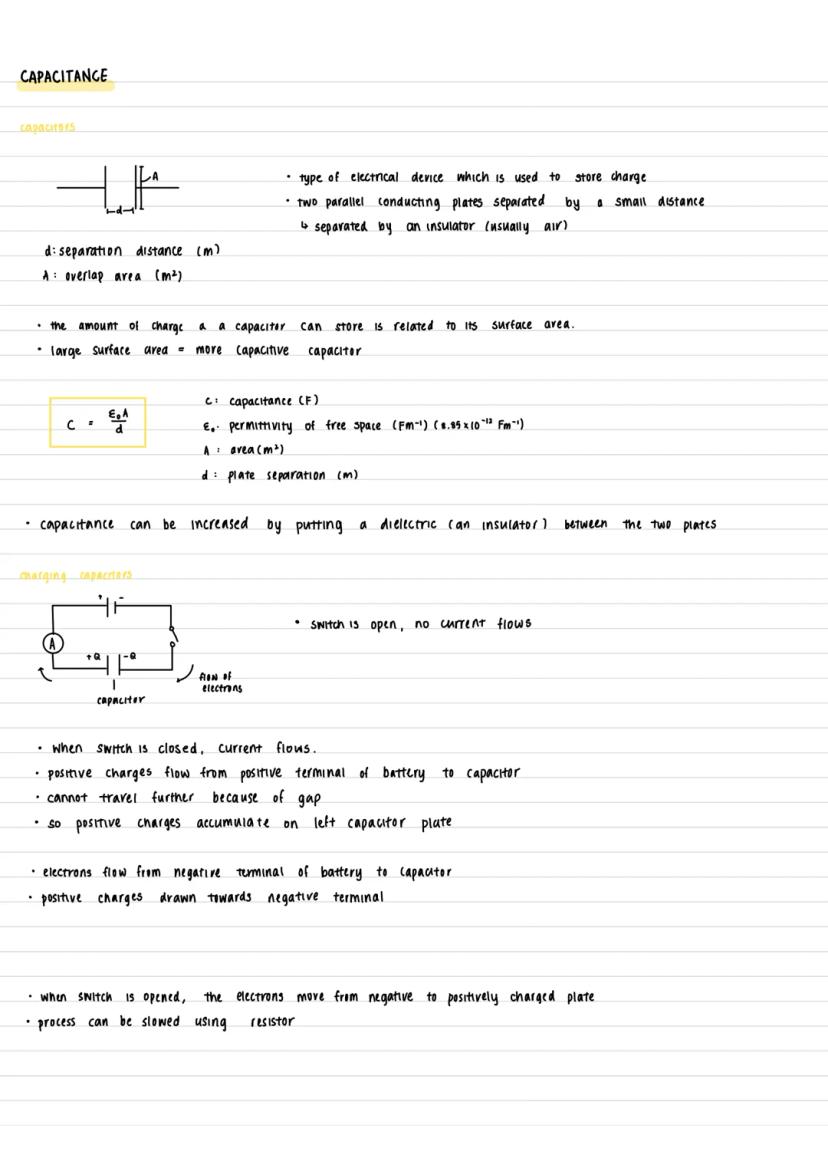 CAPACITANCE
capacitors
A
d
• type of electrical device which is used to store charge
• two parallel conducting plates separated by a small distance
↳ separated by an insulator (usually air)
d: separation distance (m)
A: overlap area (m²)
• the amount of charge a a capacitor can store is related to its surface area.
• large surface area = more capacitive capacitor
C = ε₀A/d
C: capacitance (F)
ε₀: permittivity of free space (Fm⁻¹) (8.85 x 10⁻¹² Fm⁻¹)
A: area (m²)
d: plate separation (m)
• capacitance can be increased by putting a dielectric (an insulator) between the two plates
charging capacitors
+ -
A
+Q -Q
flow of
electrons
capacitor
• switch is open, no current flows
• when switch is closed, current flows.
• positive charges flow from positive terminal of battery to capacitor
• cannot travel further because of gap
• so positive charges accumulate on left capacitor plate
• electrons flow from negative terminal of battery to capacitor
• positive charges drawn towards negative terminal
• when switch is opened, the electrons move from negative to positively charged plate
• process can be slowed using resistor